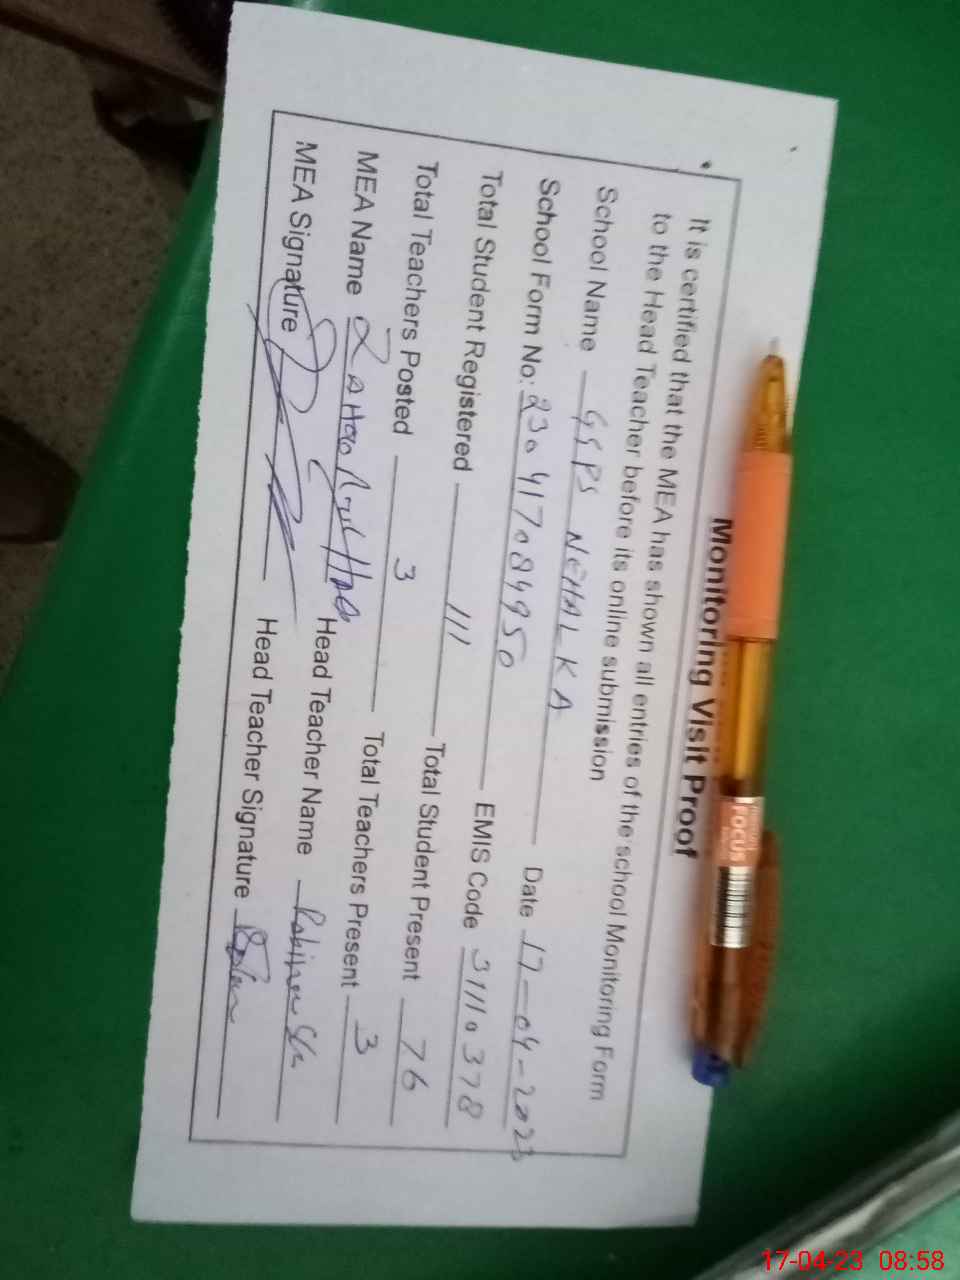 Monitoring Visit Proof
It is certified that the MEA has shown all entries of the school Monitoring Form
to the Head Teacher before its online submission
School Name GGPS NEHAL KA Date 17-04-2023
School Form No: 230417084950 EMIS Code 31110378
Total Student Registered 111 Total Student Present 76
Total Teachers Posted 3 Total Teachers Present 3
MEA Name Head Teacher Name
MEA Signature Head Teacher Signature
FOCUS
17-04-23 08:58